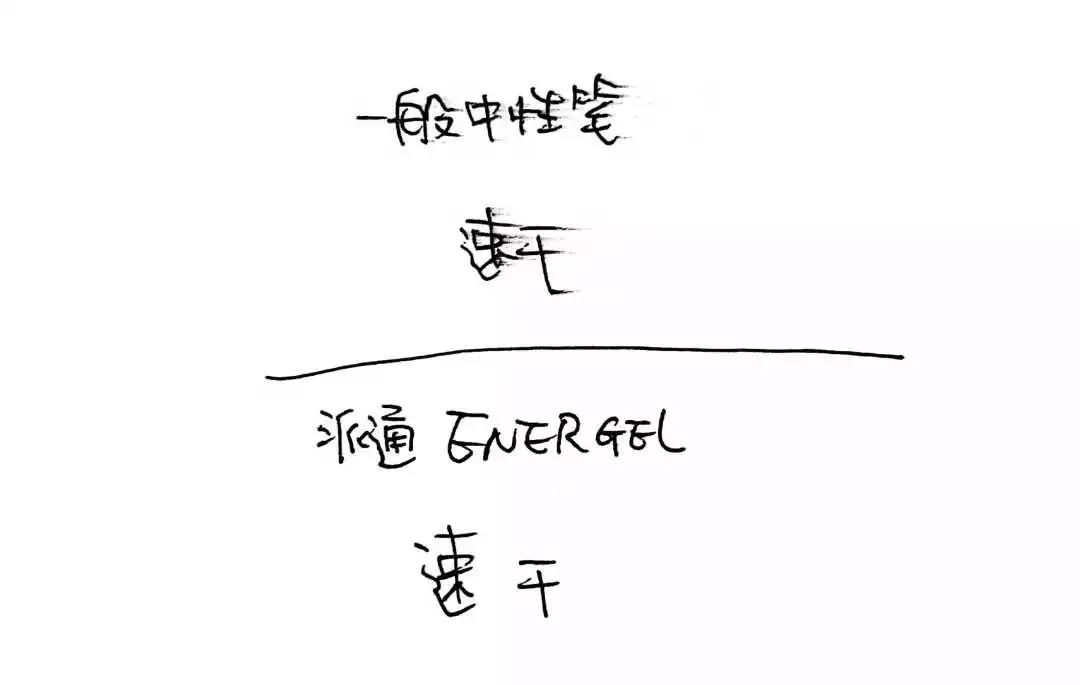 一般中性笔
速干
派通 ENERGEL
速干